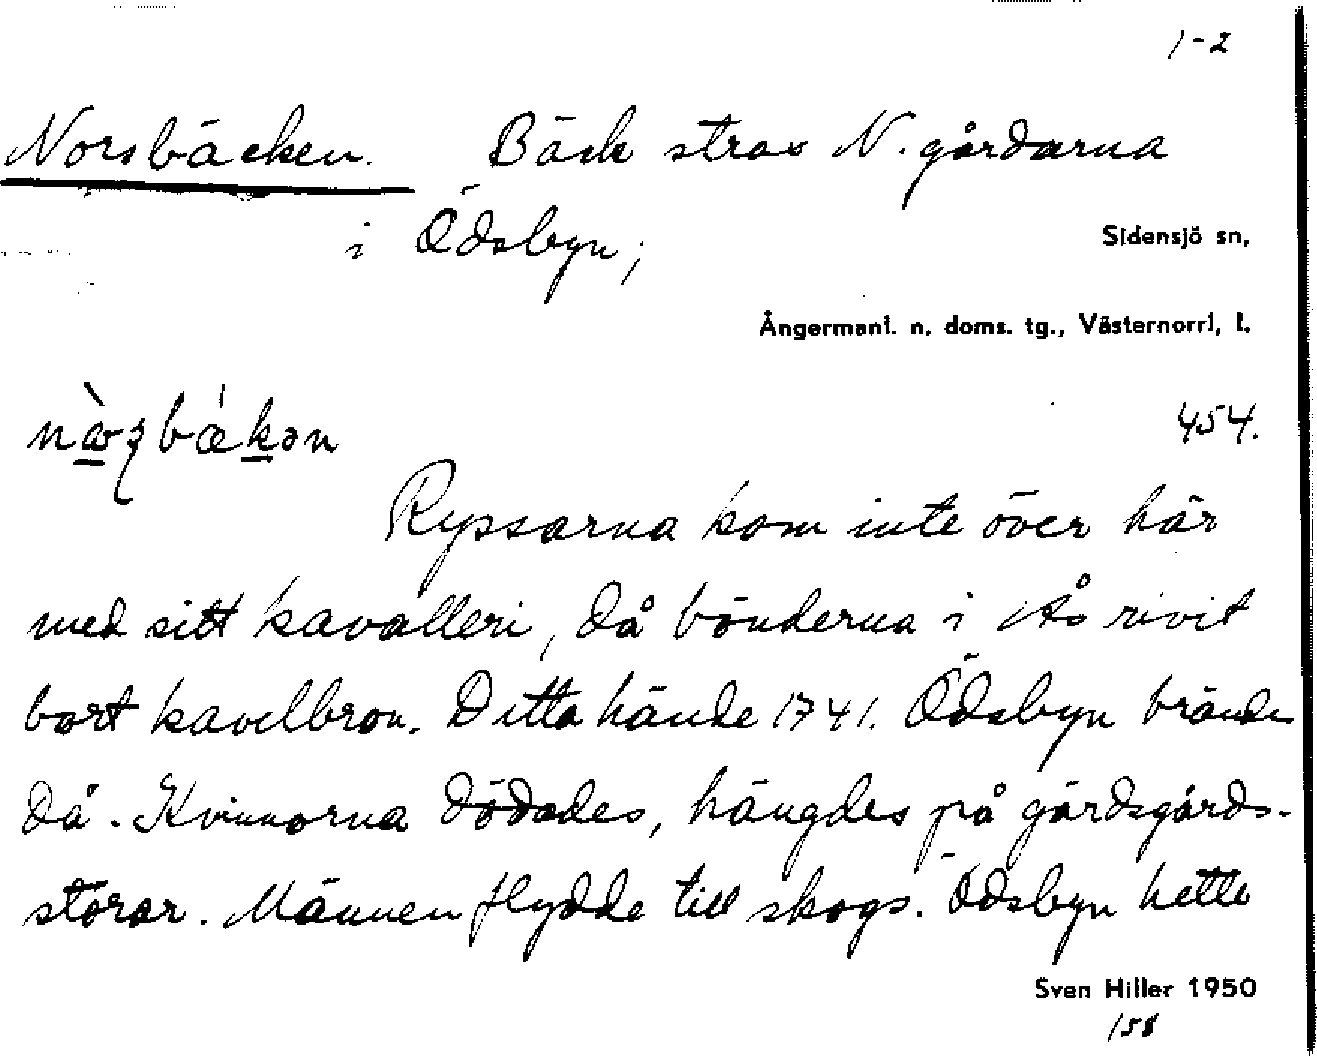 1-2
Norsbäcken. Bäck strax N. gårdarna
i Ödsbyn;
Sidensjö sn,
Ångermanl. n. doms. tg., Västernorrl, l.
454.
Ryssarna kom inte över här
med sitt kavalleri, då bönderna i Å rivit
bort kavelbron. Detta hände 1741. Ödsbyn brände
då. Kvinnorna dödades, hängdes på gärdsgårds-
störar. Männen flydde till skogs. Ödsbyn hette
Sven Hiller 1950
158